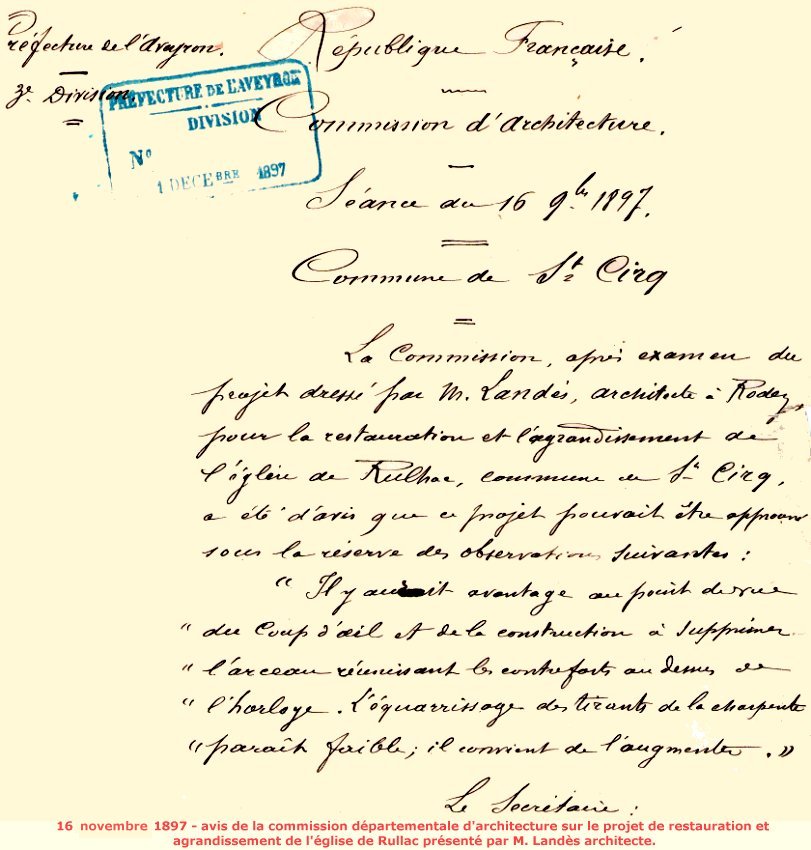 Préfecture de l'Aveyron.
3e Division
=
PREFECTURE DE L'AVEYRON
DIVISION
No
1 DECEBRE 1897
République Française.
Commission d'architecture.
Séance du 16 9bre 1897.
Commune de St Cirq
La Commission, après examen du
projet dressé par M. Landès, architecte à Rodez,
pour la restauration et l'agrandissement de
l'église de Rulhac, commune de St Cirq,
a été d'avis que ce projet pouvait être approuv
sous la réserve des observations suivantes :
" Il y aurait avantage au point de vue
" du coup d'œil et de la construction à supprimer
" l'arceau réunissant les contreforts au dessus de
" l'horloge. L'équarrissage des tirants de la charpente
" paraît faible ; il convient de l'augmenter. "
Le Secrétaire :
16 novembre 1897 - avis de la commission départementale d'architecture sur le projet de restauration et
agrandissement de l'église de Rullac présenté par M. Landès architecte.